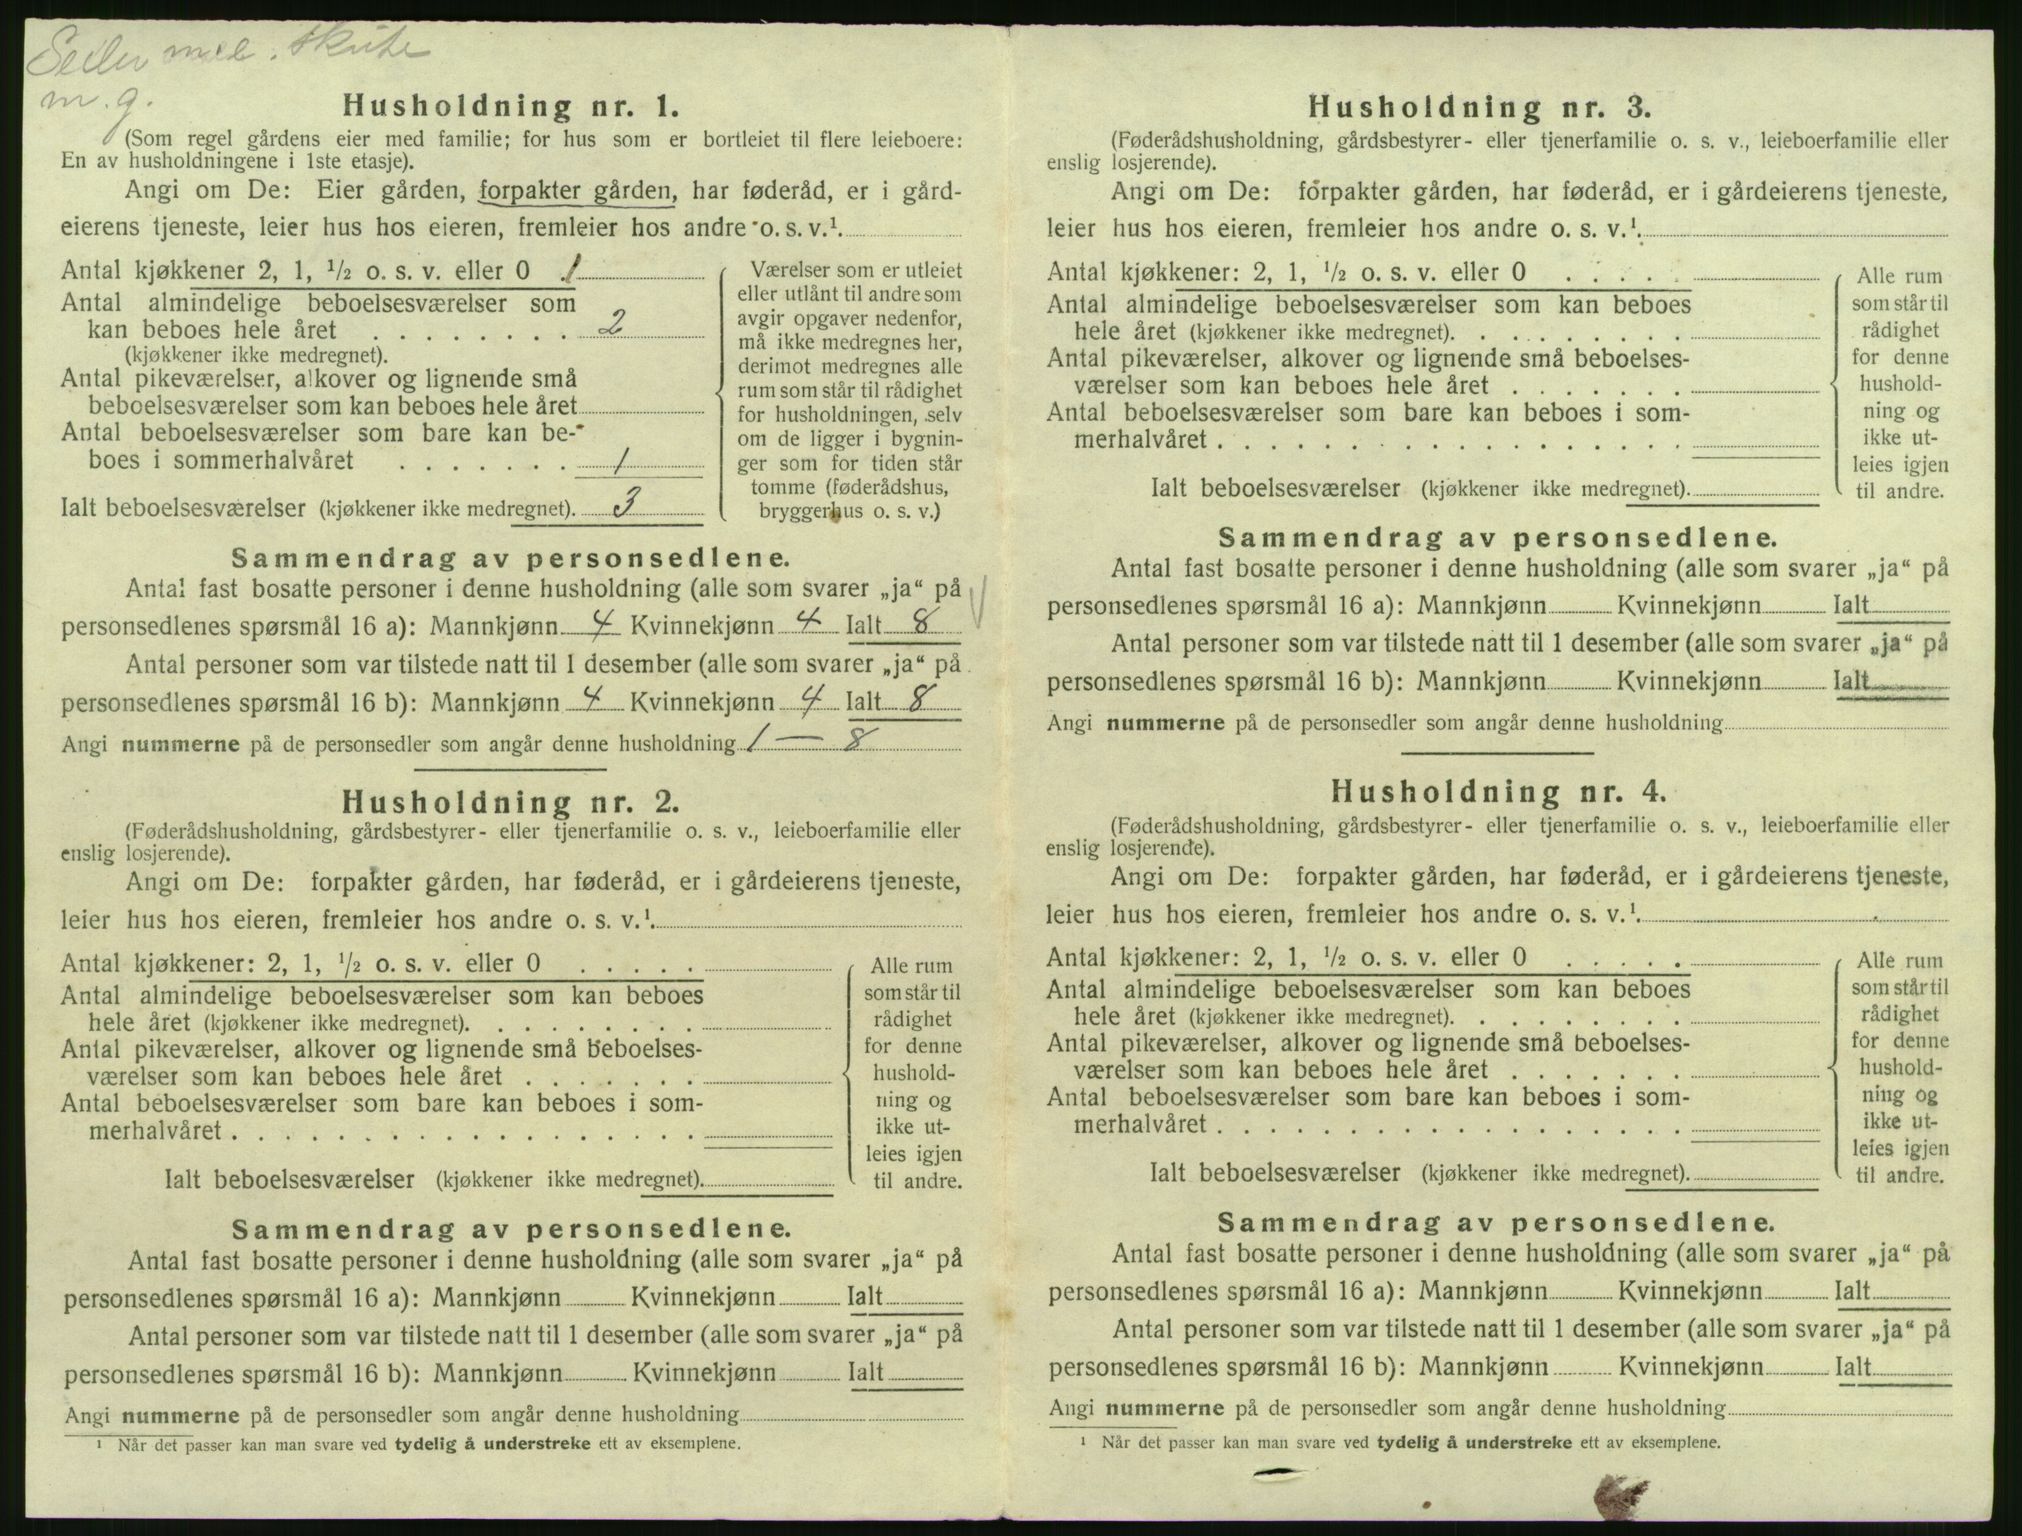 Seiler med skute
m. g.
Husholdning nr. 1.
(Som regel gårdens eier med familie; for hus som er bortleiet til flere leieboere:
En av husholdningene i 1ste etasje).
Angi om De: Eier gården, forpakter gården, har føderåd, er i gård-
eierens tjeneste, leier hus hos eieren, fremleier hos andre o. s. v.¹.
Antal kjøkkener 2, 1, ½ o. s. v. eller 0 . 1
Antal almindelige beboelsesværelser som
kan beboes hele året . . . . . . . . 2
(kjøkkener ikke medregnet).
Antal pikeværelser, alkover og lignende små
beboelsesværelser som kan beboes hele året
Antal beboelsesværelser som bare kan be-
boes i sommerhalvåret . . . . . . . 1
Ialt beboelsesværelser (kjøkkener ikke medregnet). 3
Værelser som er utleiet
eller utlånt til andre som
avgir opgaver nedenfor,
må ikke medregnes her,
derimot medregnes alle
rum som står til rådighet
for husholdningen, selv
om de ligger i bygnin-
ger som for tiden står
tomme (føderådshus,
bryggerhus o. s. v.)
Sammendrag av personsedlene.
Antal fast bosatte personer i denne husholdning (alle som svarer „ja“ på
personsedlenes spørsmål 16 a): Mannkjønn 4 Kvinnekjønn 4 Ialt 8
Antal personer som var tilstede natt til 1 desember (alle som svarer „ja“ på
personsedlenes spørsmål 16 b): Mannkjønn 4 Kvinnekjønn 4 Ialt 8
Angi nummerne på de personsedler som angår denne husholdning 1 — 8
Husholdning nr. 2.
(Føderådshusholdning, gårdsbestyrer- eller tjenerfamilie o. s. v., leieboerfamilie eller
enslig losjerende).
Angi om De: forpakter gården, har føderåd, er i gårdeierens tjeneste,
leier hus hos eieren, fremleier hos andre o. s. v.¹.
Antal kjøkkener: 2, 1, ½ o. s. v. eller 0 . . . . .
Antal almindelige beboelsesværelser som kan beboes
hele året (kjøkkener ikke medregnet). . . . . . . . .
Antal pikeværelser, alkover og lignende små beboelses-
værelser som kan beboes hele året . . . . . . .
Antal beboelsesværelser som bare kan beboes i som-
merhalvåret . . . . . . . . . . . . . . . . . .
Ialt beboelsesværelser (kjøkkener ikke medregnet).
Alle rum
som står til
rådighet
for denne
hushold-
ning og
ikke ut-
leies igjen
til andre.
Sammendrag av personsedlene.
Antal fast bosatte personer i denne husholdning (alle som svarer „ja“ på
personsedlenes spørsmål 16 a): Mannkjønn Kvinnekjønn Ialt
Antal personer som var tilstede natt til 1 desember (alle som svarer „ja“ på
personsedlenes spørsmål 16 b): Mannkjønn Kvinnekjønn Ialt
Angi nummerne på de personsedler som angår denne husholdning
¹ Når det passer kan man svare ved tydelig å understreke ett av eksemplene.
Husholdning nr. 3.
(Føderådshusholdning, gårdsbestyrer- eller tjenerfamilie o. s. v., leieboerfamilie eller
enslig losjerende).
Angi om De: forpakter gården, har føderåd, er i gårdeierens tjeneste,
leier hus hos eieren, fremleier hos andre o. s. v.¹.
Antal kjøkkener: 2, 1, ½ o. s. v. eller 0 . . . . .
Antal almindelige beboelsesværelser som kan beboes
hele året (kjøkkener ikke medregnet). . . . . . . . .
Antal pikeværelser, alkover og lignende små beboelses-
værelser som kan beboes hele året . . . . . . .
Antal beboelsesværelser som bare kan beboes i som-
merhalvåret . . . . . . . . . . . . . . . . . .
Ialt beboelsesværelser (kjøkkener ikke medregnet).
Alle rum
som står til
rådighet
for denne
hushold-
ning og
ikke ut-
leies igjen
til andre.
Sammendrag av personsedlene.
Antal fast bosatte personer i denne husholdning (alle som svarer „ja“ på
personsedlenes spørsmål 16 a): Mannkjønn Kvinnekjønn Ialt
Antal personer som var tilstede natt til 1 desember (alle som svarer „ja“ på
personsedlenes spørsmål 16 b): Mannkjønn Kvinnekjønn Ialt
Angi nummerne på de personsedler som angår denne husholdning
Husholdning nr. 4.
(Føderådshusholdning, gårdsbestyrer- eller tjenerfamilie o. s. v., leieboerfamilie eller
enslig losjerende).
Angi om De: forpakter gården, har føderåd, er i gårdeierens tjeneste,
leier hus hos eieren, fremleier hos andre o. s. v.¹.
Antal kjøkkener: 2, 1, ½ o. s. v. eller 0 . . . . .
Antal almindelige beboelsesværelser som kan beboes
hele året (kjøkkener ikke medregnet). . . . . . . . .
Antal pikeværelser, alkover og lignende små beboelses-
værelser som kan beboes hele året . . . . . . .
Antal beboelsesværelser som bare kan beboes i som-
merhalvåret . . . . . . . . . . . . . . . . . .
Ialt beboelsesværelser (kjøkkener ikke medregnet).
Alle rum
som står til
rådighet
for denne
hushold-
ning og
ikke ut-
leies igjen
til andre.
Sammendrag av personsedlene.
Antal fast bosatte personer i denne husholdning (alle som svarer „ja“ på
personsedlenes spørsmål 16 a): Mannkjønn Kvinnekjønn Ialt
Antal personer som var tilstede natt til 1 desember (alle som svarer „ja“ på
personsedlenes spørsmål 16 b): Mannkjønn Kvinnekjønn Ialt
Angi nummerne på de personsedler som angår denne husholdning
¹ Når det passer kan man svare ved tydelig å understreke ett av eksemplene.